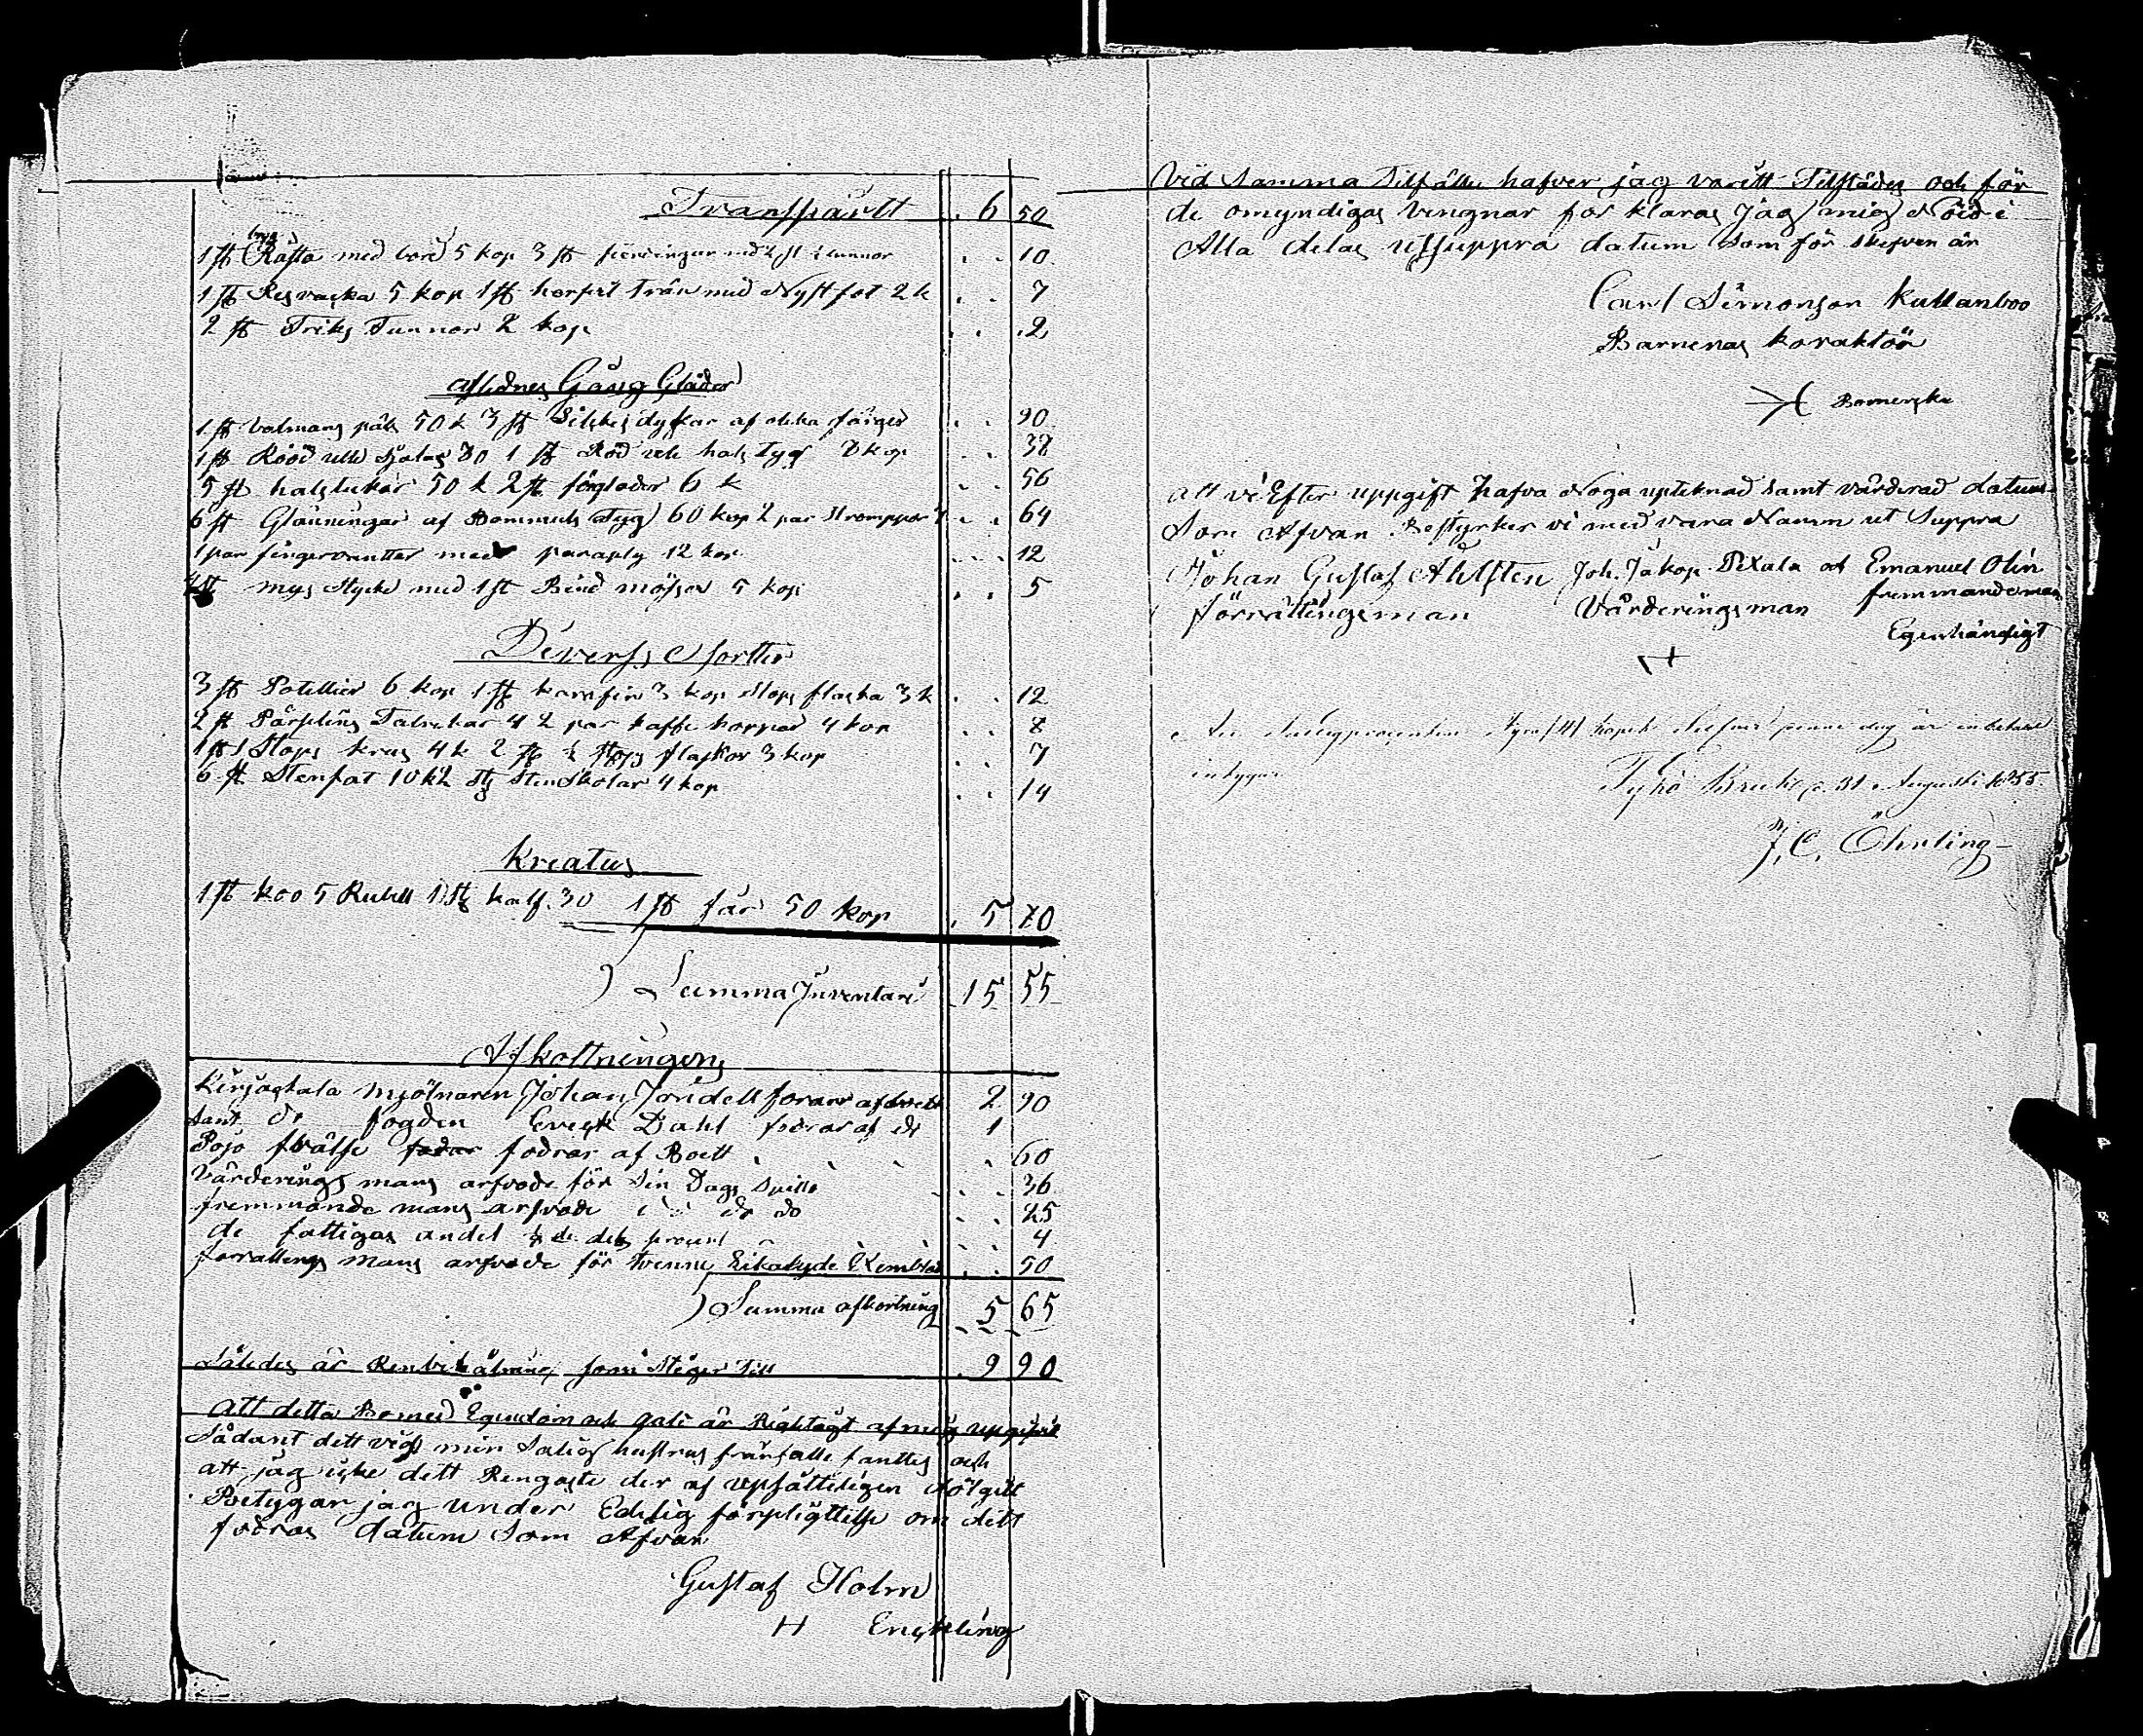 Transpårtt . 6 50
1 st Råsta med bord 5 kop 3 st fierdingar med 2 st tunnor . . 10
1 st Resvaska 5 kop 1 st med Nystfot 2 k . . 7
2 st Triks Tunnor 2 kop . . 2
aflednes Gång Cläder
1 st Valmans päls 50 k 3 st Silkis dykar af olika färger . . 90
1 st Rööd ulle Sjalas 30 1 st Röd ull hals Tyg 8 kop . . 38
5 st halstukar 50 k 2 st förglader 6 k . . 56
6 st Clänningar af Bommuls Tyg 60 kop 2 par Strompor 4 . . 64
1 par fingervantter med paraply 12 kop . . 12
4 st mys Stycke med 1 st Bind mössor 5 kop . . 5
Diverss Sortter
3 st Potellier 6 kop 1 st karafin 3 kop Stops flaska 3 k . . 12
2 st Pårslins Talrikar 4 2 par kaffe koppar 4 kop . . 8
1 st 1 Stops krus 4 k 2 st ½ stops flaskor 3 kop . . 7
6 st Stenfat 10 k 2 st Stenskolar 4 kop . . 14
Kreatus
1 st koo 5 Rubell 1 st kalf 30 1 st får 50 kop . 5 70
Summa Inventarí 15 55
Afkottningens
Kirjaskala mjölnaren Johan Joridell fordrar af boett 2 90
samt dr fogden Erick Dahl fodrar af dr 1
Pojo frälse fodrar af Boett . 60
Värderings mans arfvode för Sin Dags Spille . . 36
fremmande mans arfvode i dr do . . 25
de fattigas andel procent . . 4
forrattings mans arfvode för tvenne Likalyde . . 50
Summa afkortning 5 65
Således är Renbehålning som Stiger Till . 9 90
att detta Bo med Egendom och gald är Riektigt af mig uppgifvit
Sådant dett vid min Salig hustrus frånfälle fanttes och
att jag icke dett Ringaste der af upsåtteligen dölgitt
Betygar jag under Edelig förpligttilse om ditt
fodras datum Som Afvan
Gustaf Holm
H Enckling
Vid Samma Tilfälle hafver jag varitt Tilstädes och för
de omyndigas Vengnar för klaras jag mig Nöid i
Alla delas utsuppra datum Som för skrefven är
Carl Simonson Kullanboo
Barnenas koraktör
Bomerske
att vi Efter uppgift hafva Noga upteknad samt värderad datum
Som Afvan Bestyrker vi med vara Namn ut Suppra
Johan Gustaf Ahlsten Joh. Jakop Pixala och Emanuel Olin
förrättingsman Värderingsman fremmandeman
Egenhändigt
Att fattigprocenten fyra (4) kopek Silfver denne dag är inbetald
intygar
Tykö Bruk d. 31 Augusti 1855.
J. C. Öhrling